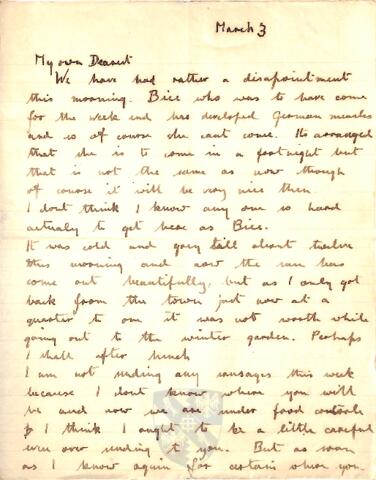 March 3
My own Dearest
We have had rather a disapointment
this morning. Bice who was to have come
for the week end has developed German measles
and so of course she cant come. Its arranged
that she is to come in a fortnight but
that is not the same as now though
of course it will be very nice then.
I dont think I know any one so hard
actualy to get here as Bice.
It was cold and grey till about twelve
this morning and now the sun has
come out beautifully, but as I only got
back from the town just now at a
quarter to one it was not worth while
going out to the winter garden. Perhaps
I shall after lunch
I am not sending any sausages this week
because I dont know where you will
be and now we are under food controls
I think I ought to be a little careful
even over sending to you. But as soon
as I know again for certain where you